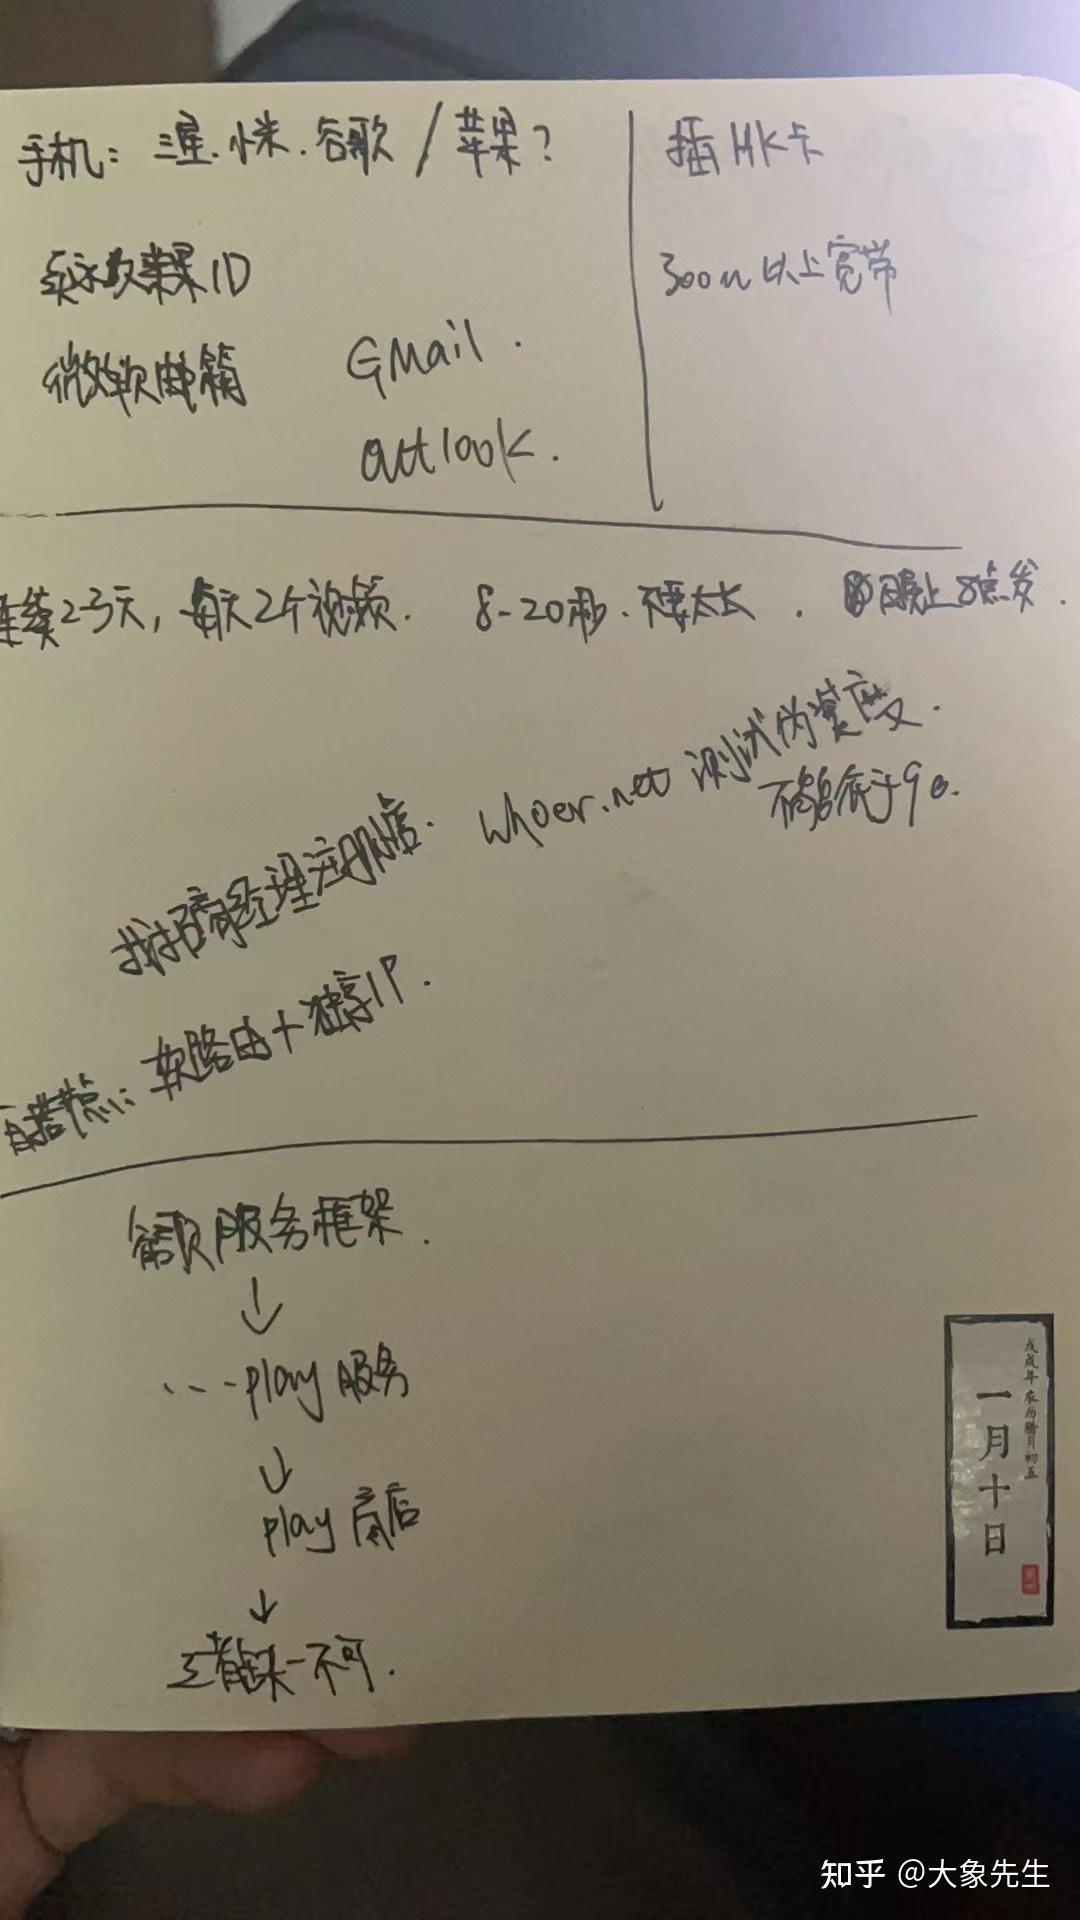 手机：三星、小米、谷歌／苹果？
插HK卡
美区苹果ID
300M以上宽带
微软邮箱
GMail.
outlook.
连续2-3天，每天2个视频.
8-20秒.不要太长.
晚上8点发.
whoer.net 测试伪装度.
不能低于90.
找招商经理注册店.
自搭节点：软路由+独享IP.
谷歌服务框架.
↓
...play服务
↓
play商店
↓
三者缺一不可.
戊戌年 农历腊月初五
一月十日
知乎 @大象先生